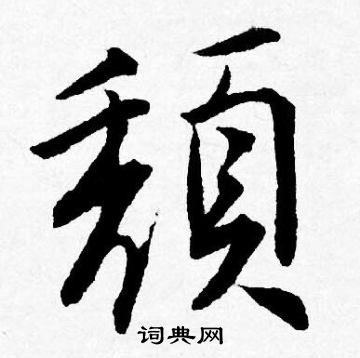 頹
词典网